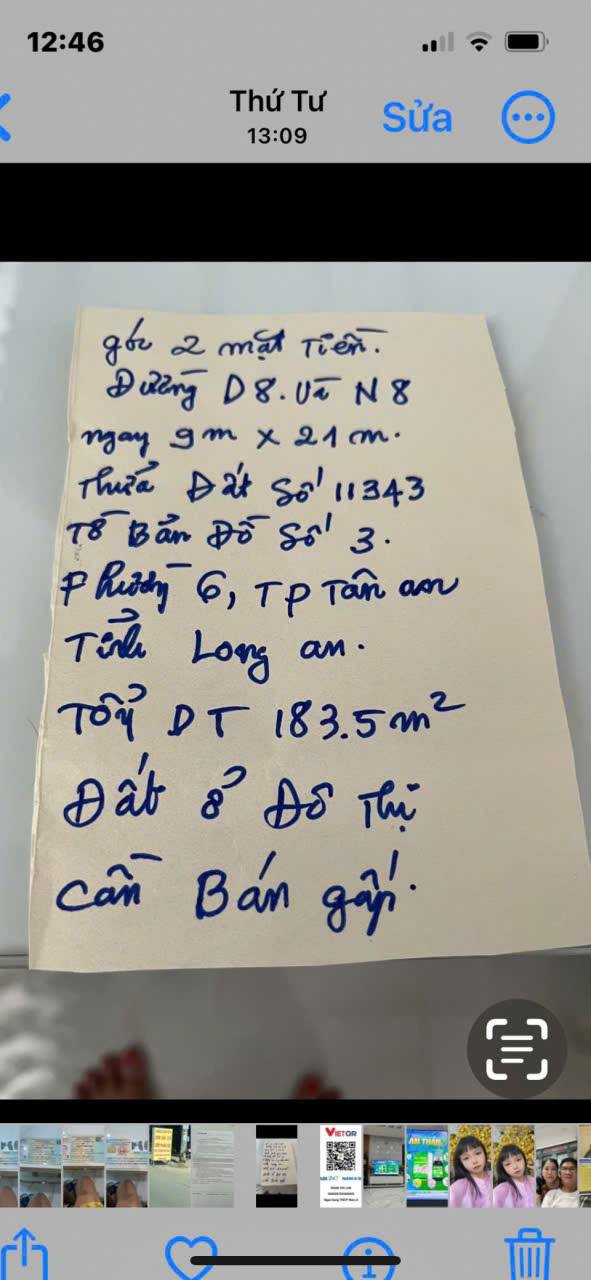 12:46
Thứ Tư
13:09
Sửa
góc 2 mặt Tiền.
Đường D8. Và N8
ngay 9m x 21m.
Thửa Đất Số 11343
Tờ Bản Đồ Số 3.
Phường 6, TP Tân an
Tỉnh Long an.
Tổng DT 183.5m²
Đất ở Đô Thị
Cần Bán gấp.
VIETQR
AN THẦN